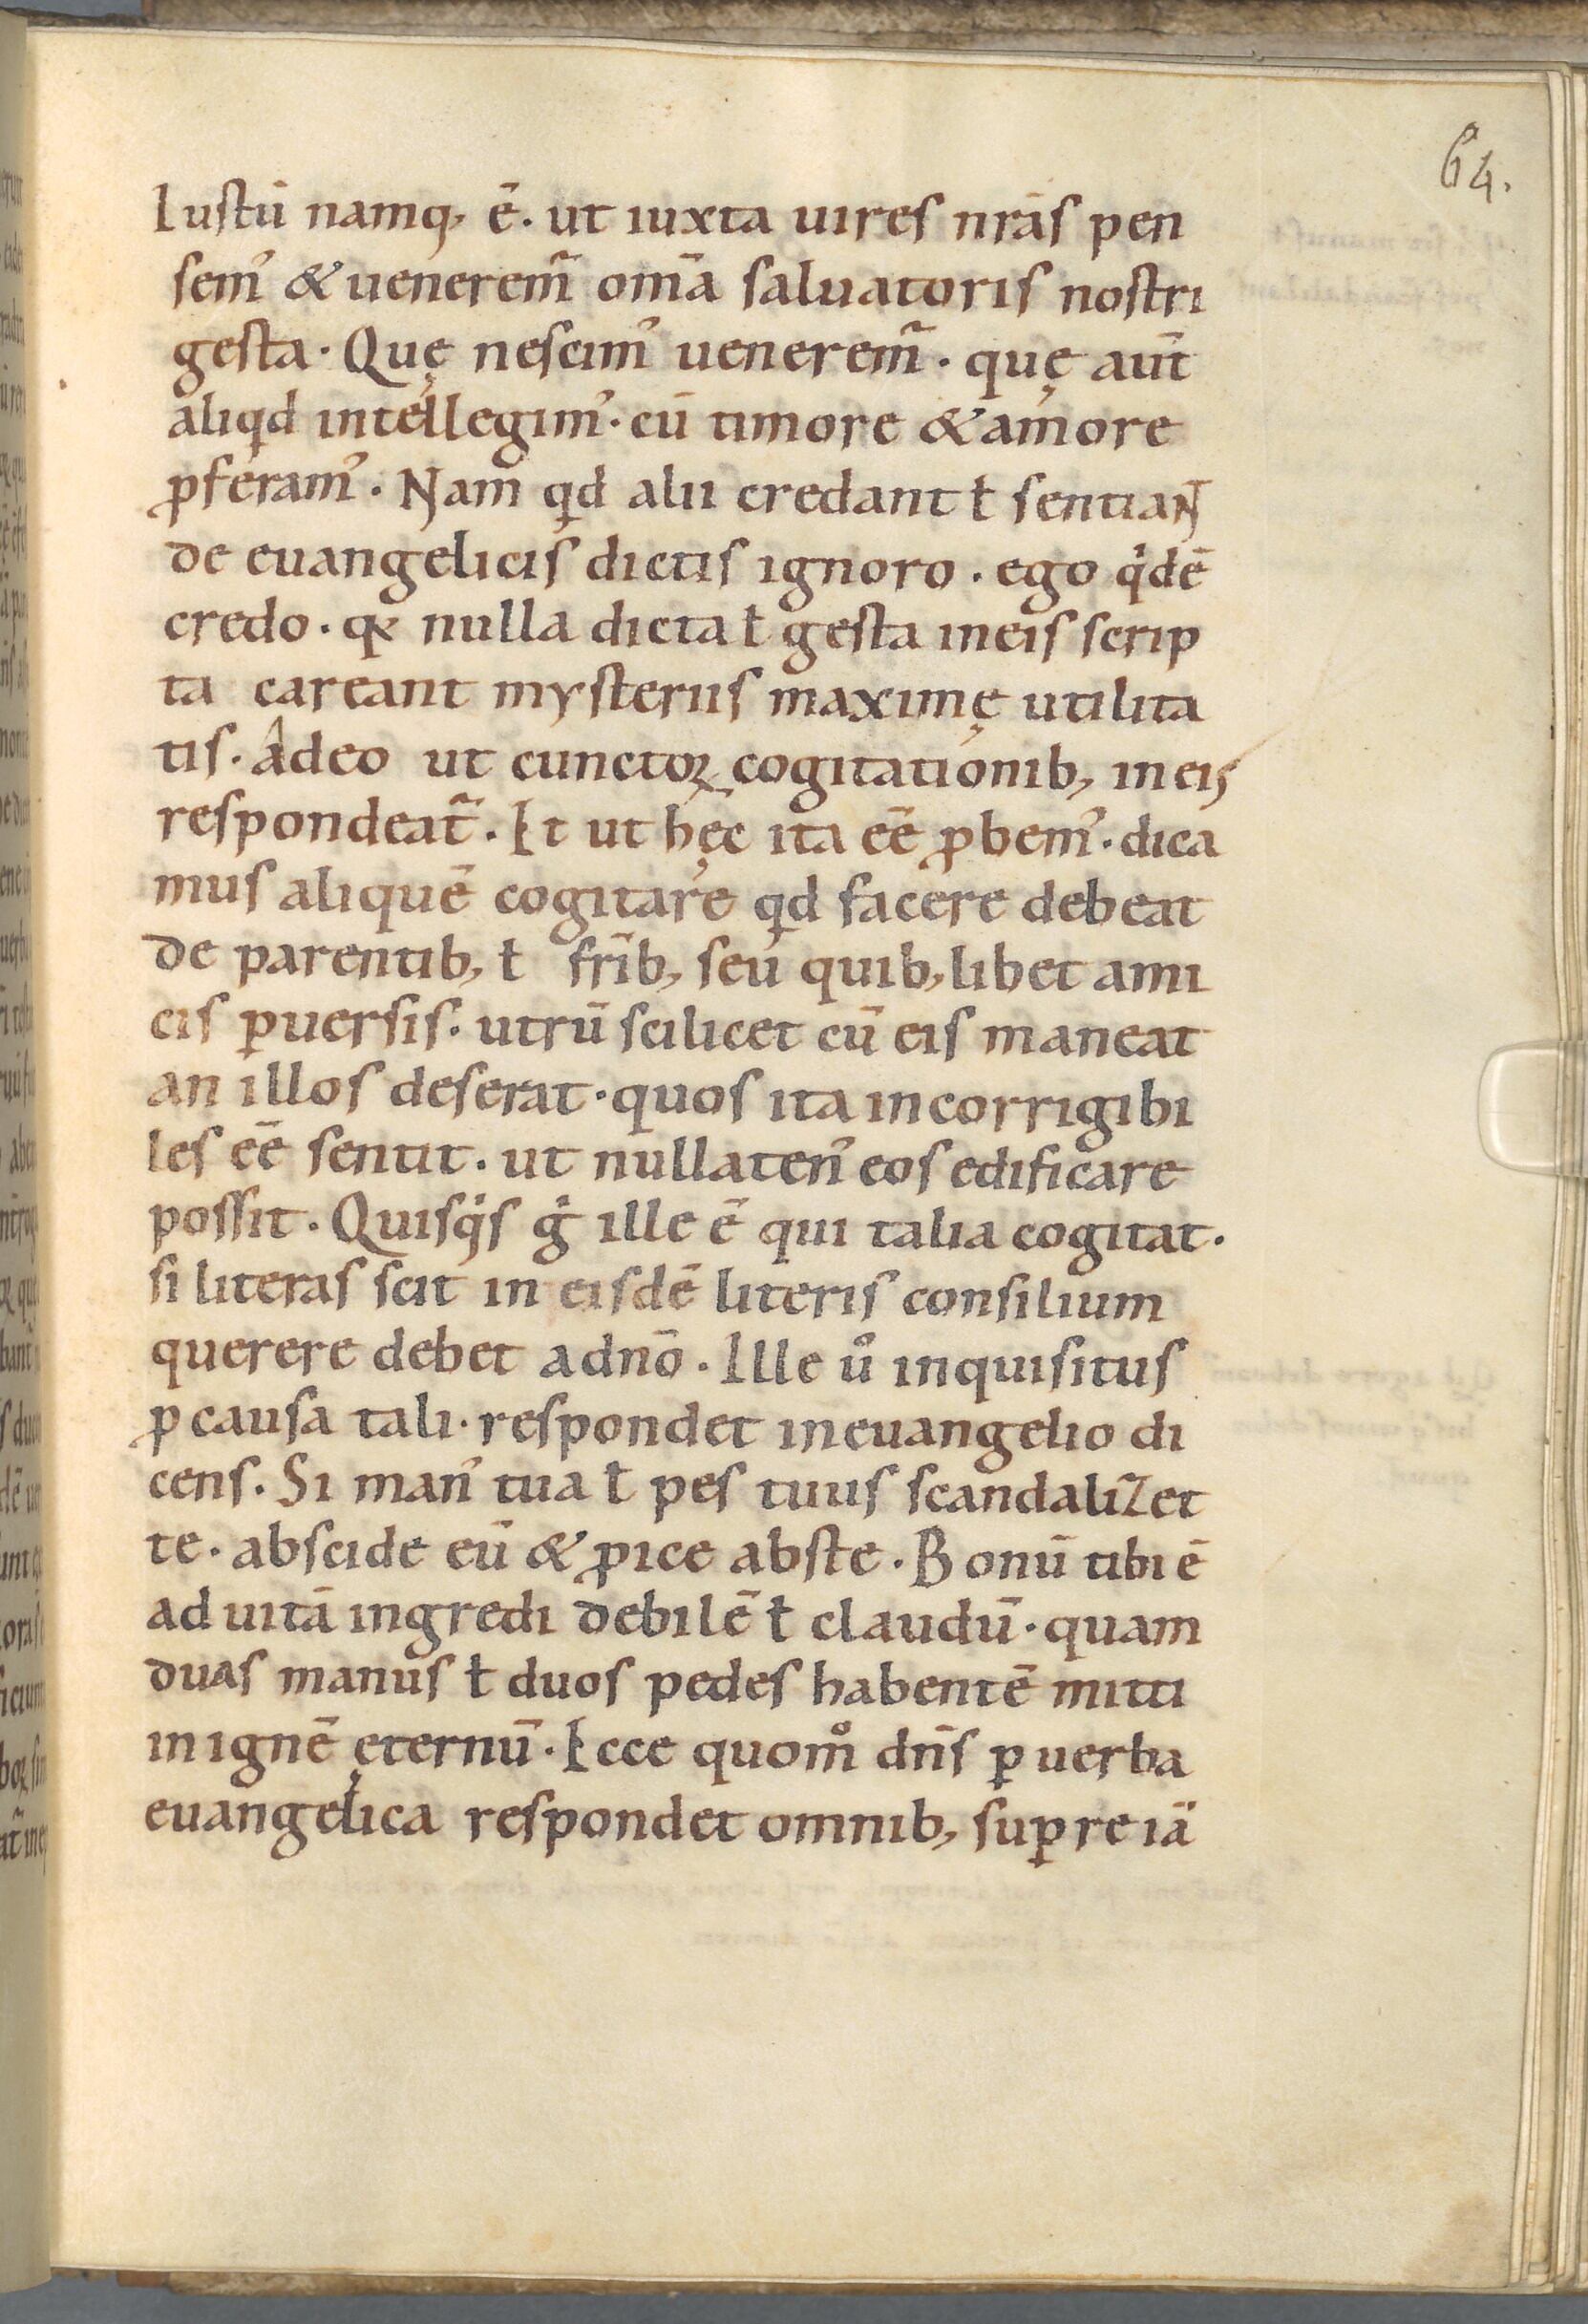 64.
Iustū namq, ē. ut iuxta uires nrās pen
sem᾽ & ueneremᷣ om̄a saluatoris nostri
gesta. Quę nescim᾽ ueneremᷣ. quę aut̄
aliqd intellegim᾽. cū timore & amore
ꝓferam᾽. Nam qd alii credant ł sentiaNT
de euangelicis dictis ignoro. ego qͥdē
credo. qꝛ nulla dicta ł gesta ineis scrip
ta careant mysteriis maximę utilita
tis. Adeo ut cunctoꝝ cogitationib, in eis
respondeatᷣ. Et ut hęc ita eē̄ ꝓbem᾽. dica
mus aliquē cogitare qd facere debeat
de parentib, ł fr̄ib, seu quib,libet ami
cis ꝑuersis. utrū scilicet cū eis maneat
an illos deserat. quos ita incorrigibi
les eē̄ sentit. ut nullaten᾽ eos edificare
possit. Quisqͥs gͦ ille ē qui talia cogitat.
si literas scit in eisdē literis consilium
querere debet adnō. Ille uͦ inquisitus
ꝓ causa tali. respondet ineuangelio di
cens. Si man᾽ tua ł pes tuus scandalizet
te. abscide eū & ꝓice abste. Bonū tibi ē
ad uitā ingredi debilē ł claudū. quam
duas manus ł duos pedes habentē mitti
in ignē ęternū. Ecce quomͦ dn̄s ꝑ uerba
euangelica respondet omnib, suꝑ re iā